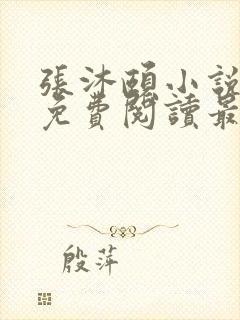 張沐頤小說
免費閱讀最
殷萍